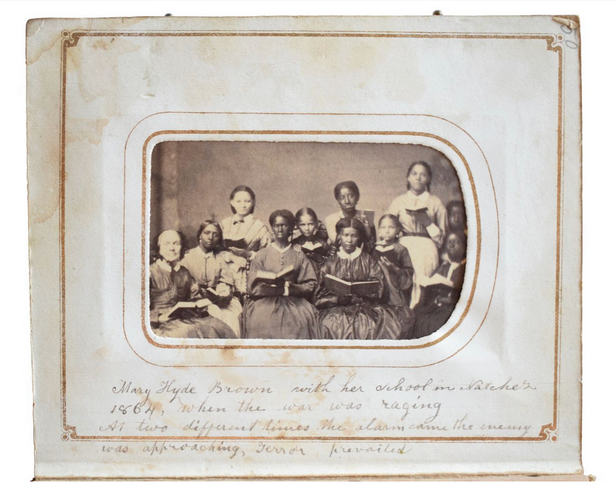 Mary Hyde Brown with her School in Natchez
1864, when the war was raging
At two different times the alarm came the enemy
was approaching, Terror prevailed